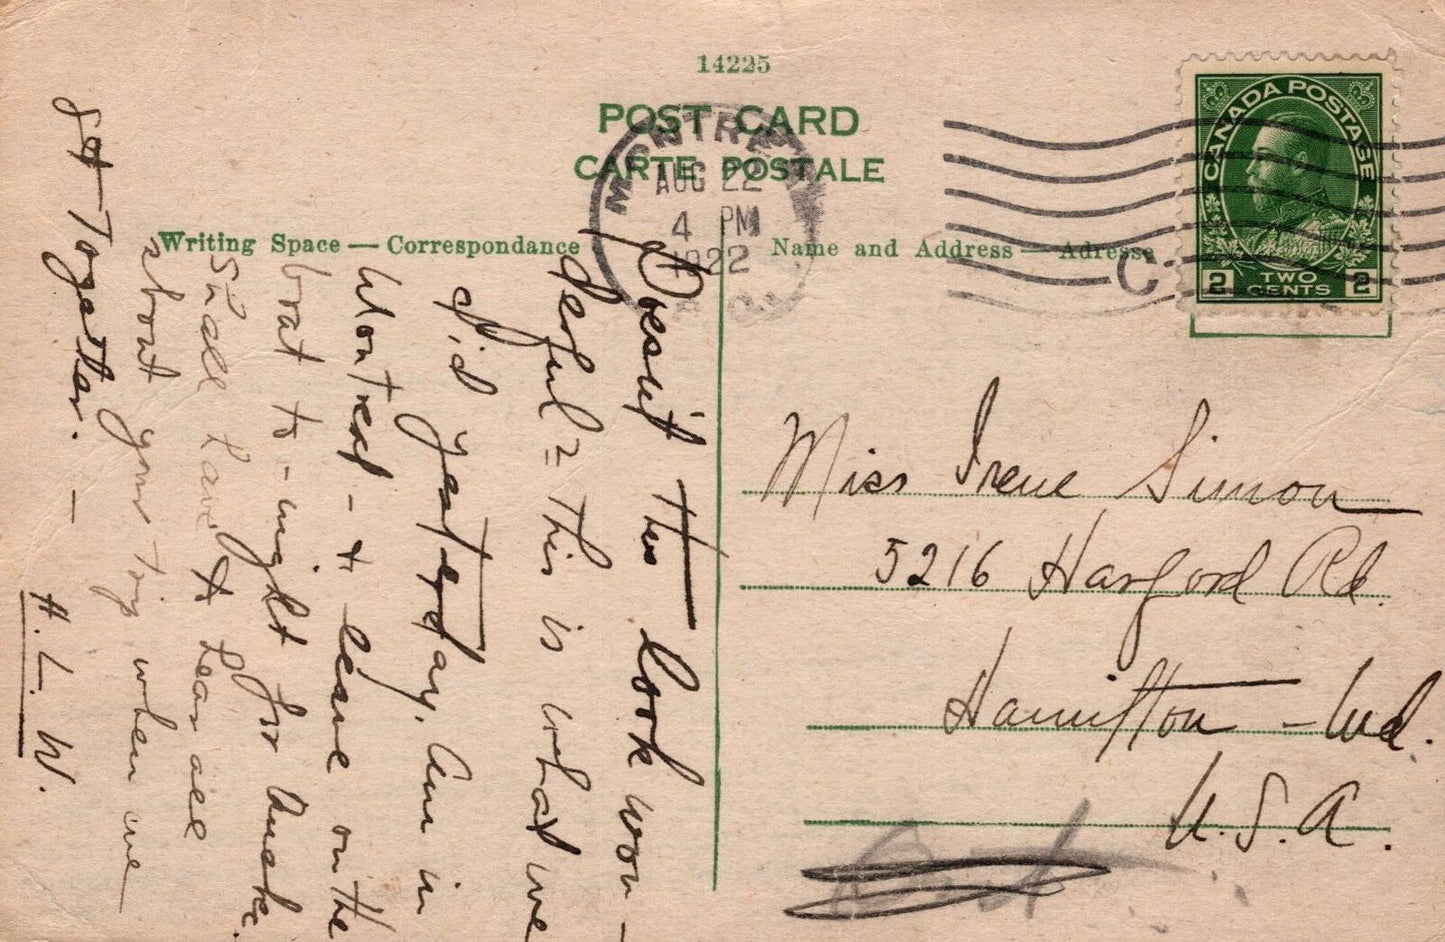 14225
POST CARD
CARTE POSTALE
Writing Space — Correspondance
Name and Address — Adresse
MONTREAL
AUG 22
4 PM
1922
P.Q.
C
CANADA POSTAGE
2 TWO CENTS 2
Doesn't this look won-
derful = This is what we
did yesterday. Am in
Montreal - + leave on the
boat to-night for Quebec.
Shall have to hear all
about your trip when we
get-Together. —
H. L. W.
Miss Irene Simon
5216 Harford Rd.
Hamilton - Md.
U. S. A.